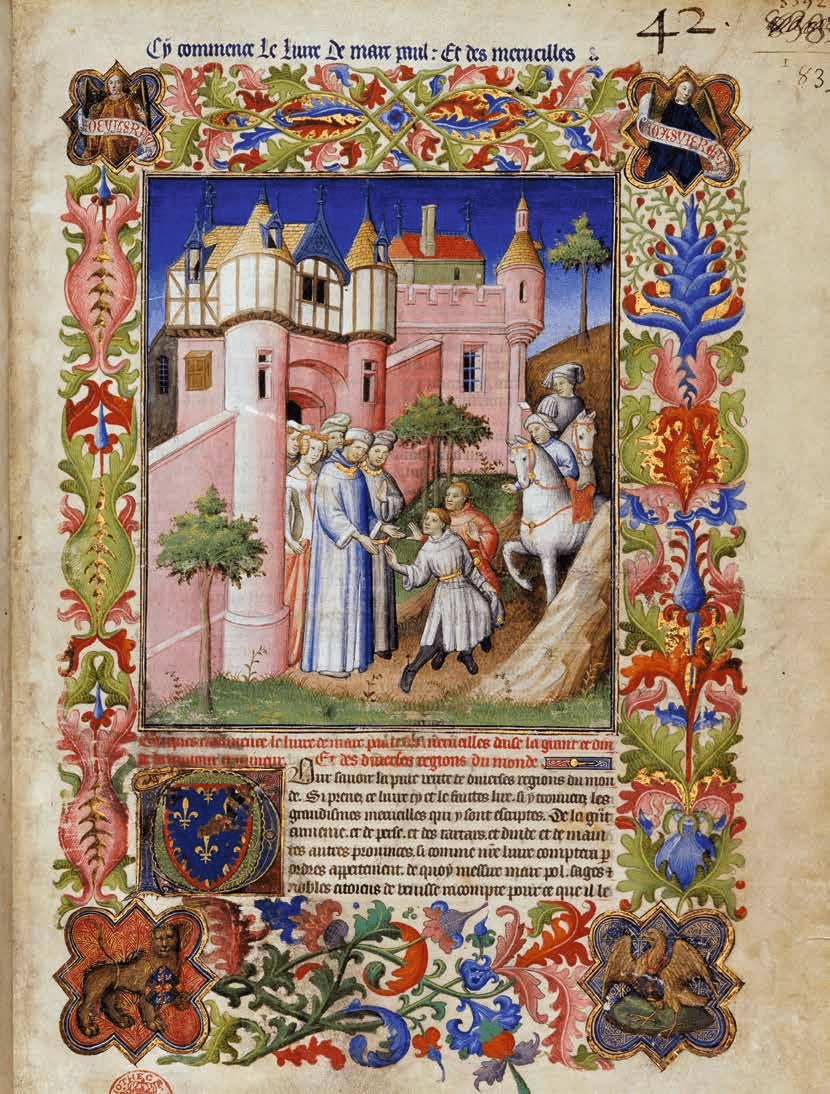 42.
83
Cy commence le livre de marc paul : Et des merveilles
Cy apres commence le livre de marc paul des merveilles daise la grant et din
de la maiour et mineur Et des diverses regions du monde
Pour savoir la pure verite de diverses regions du mon
de. Si prenez ce livre cy et le faittes lire. si y trouverez les
grandismes merveilles qui y sont escriptes. De la grãt
armenie. et de perse. et des tartars. et dinde et de maint
tes autres provinces. si comme nr̃e livre comptera p
ordres appertement. de quoy messire marc pol. sages &
nobles citoiens de venisse racompte pour ce que il le